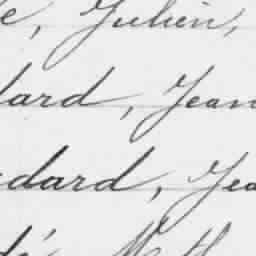 e, Julien,
lard, Jean
dard, Jea